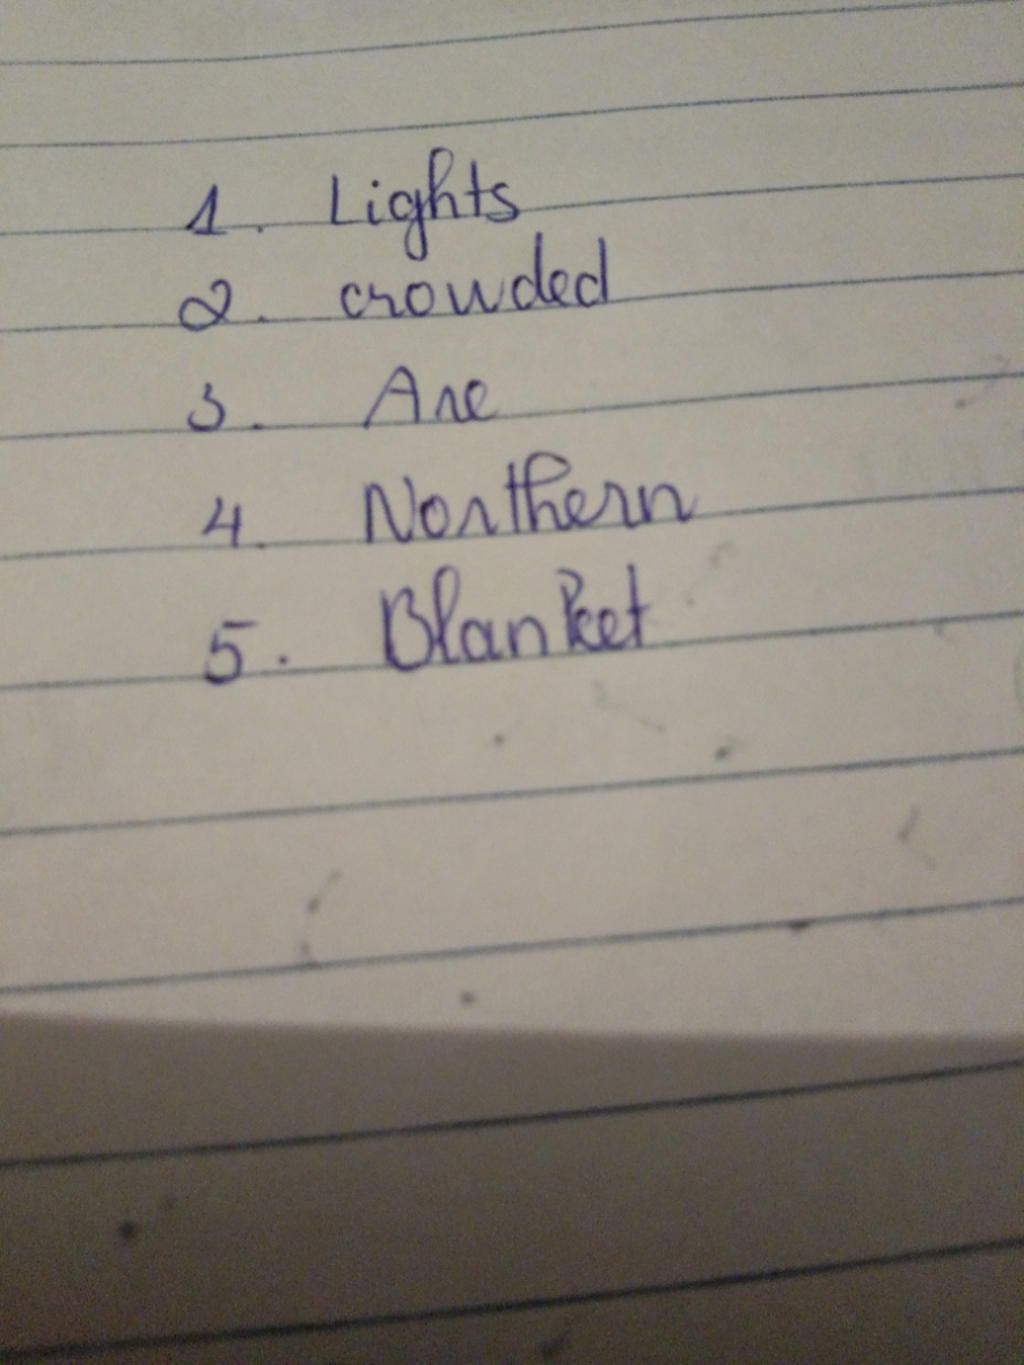 1. Lights
2. crowded
3. Are
4. Northern
5. Blanket